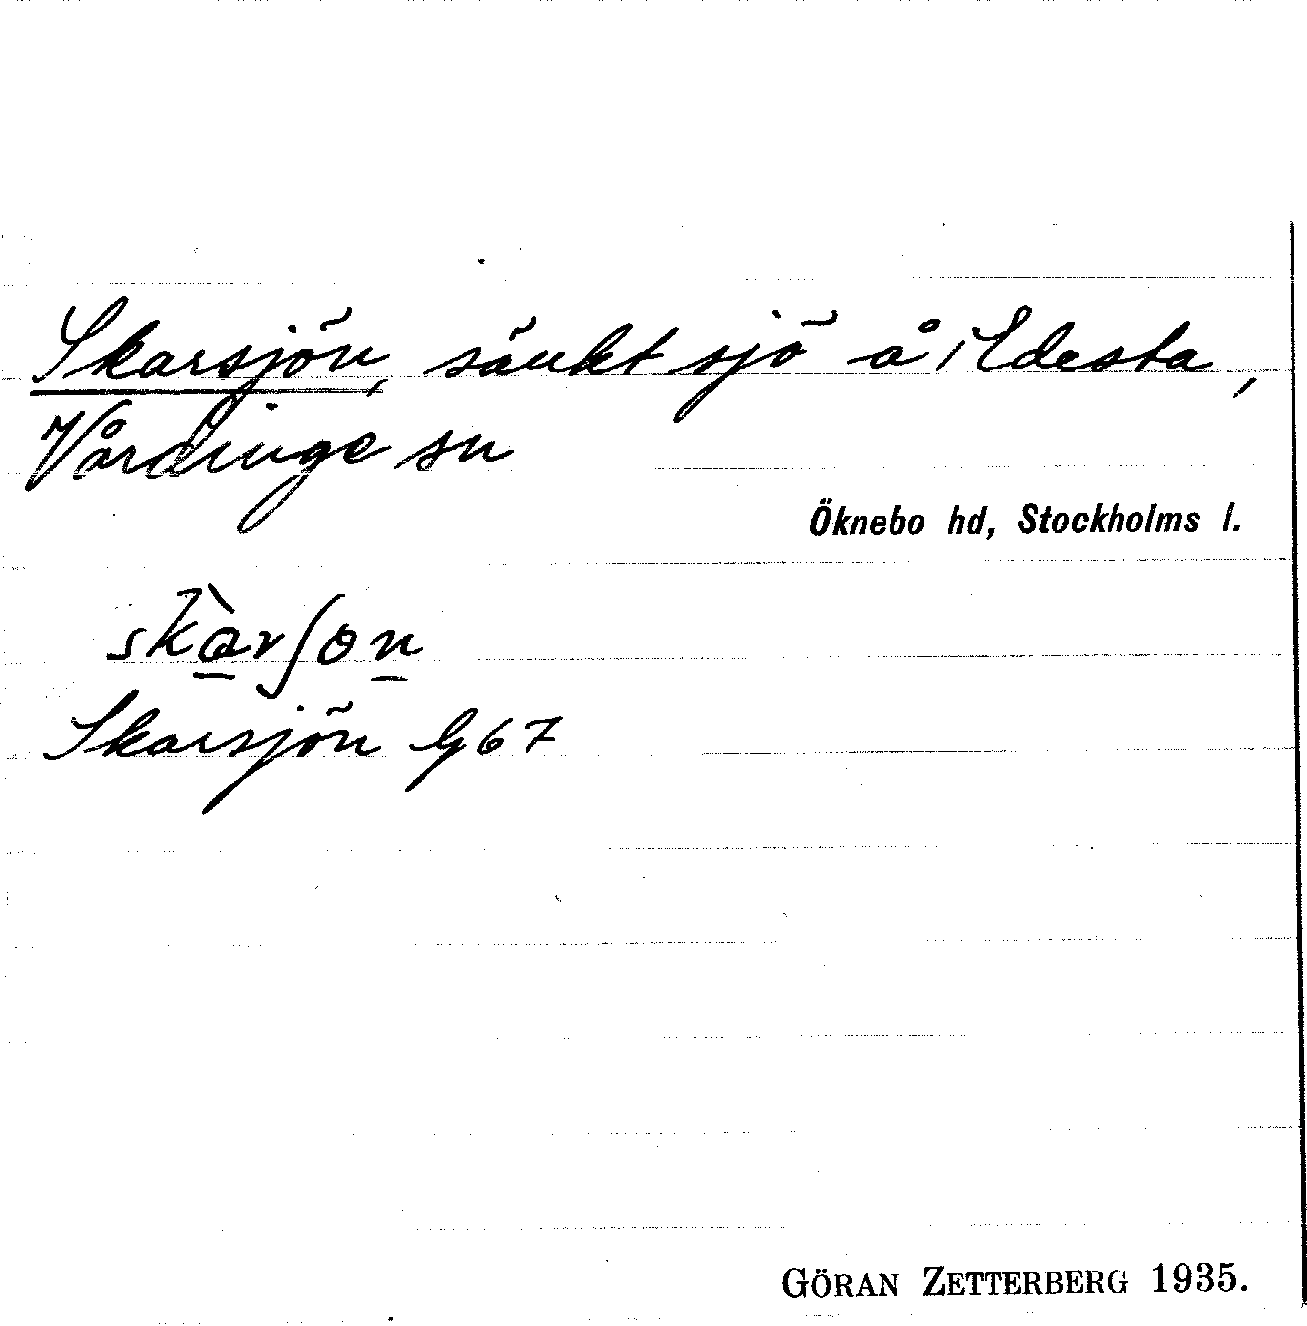 Skarsjön, sänkt sjö å Edesta,
Vårdinge sn
Öknebo hd, Stockholms l.
skàrʃon
Skarsjön G67
GÖRAN ZETTERBERG 1935.